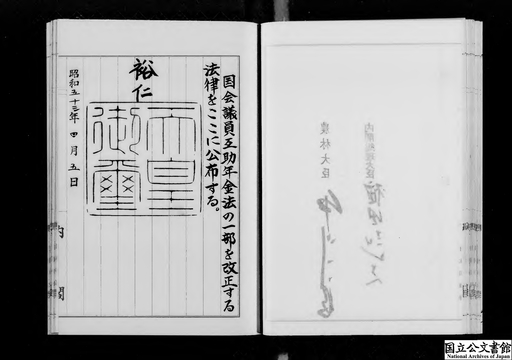 国会議員互助年金法の一部を改正する
法律をここに公布する。
裕仁
天皇
御璽
昭和五十三年四月五日
内閣
国立公文書館
National Archives of Japan